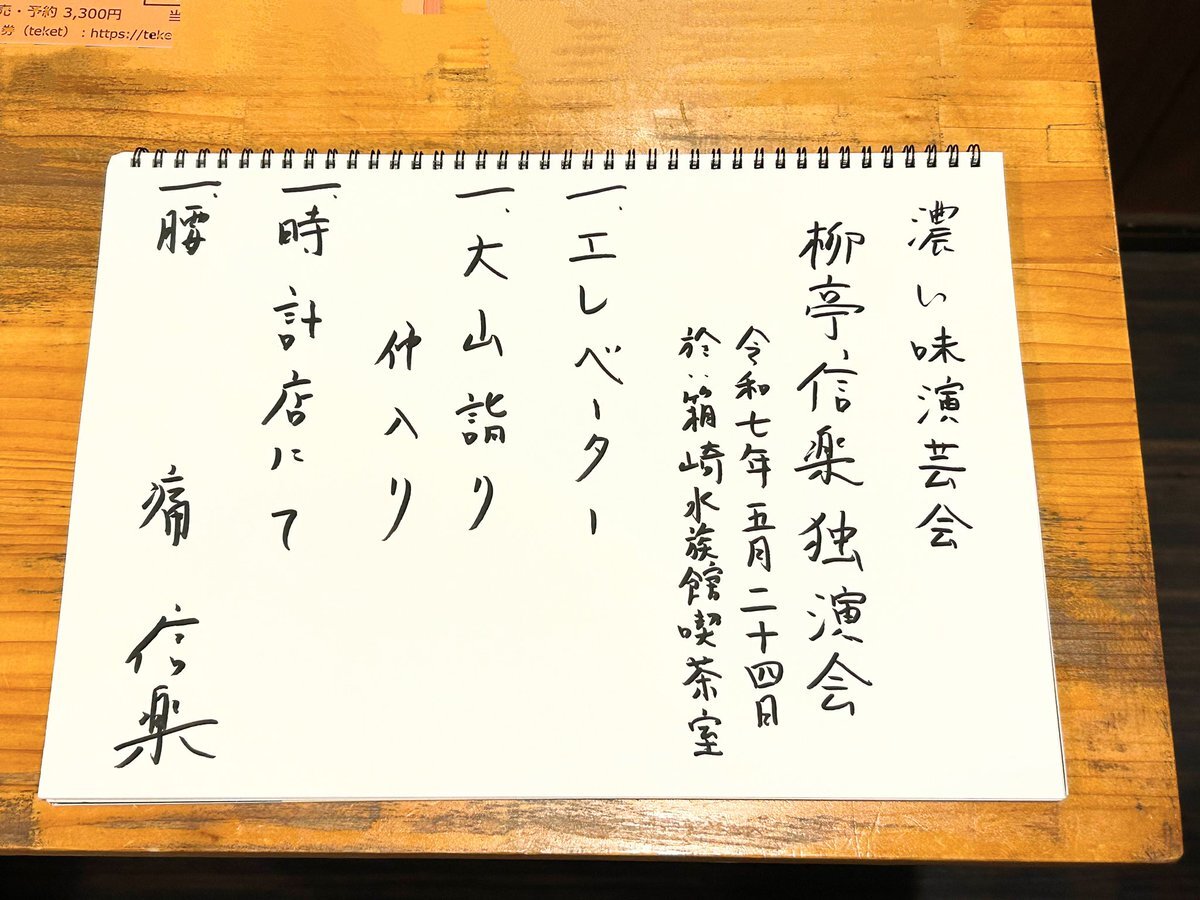 売・予約 3,300円
券（teket）：https://teke
濃い味演芸会
柳亭信楽独演会
令和七年五月二十四日
於：箱崎水族館喫茶室
一、エレベーター
一、大山詣り
仲入り
一、時計店にて
一、腰痛 信楽